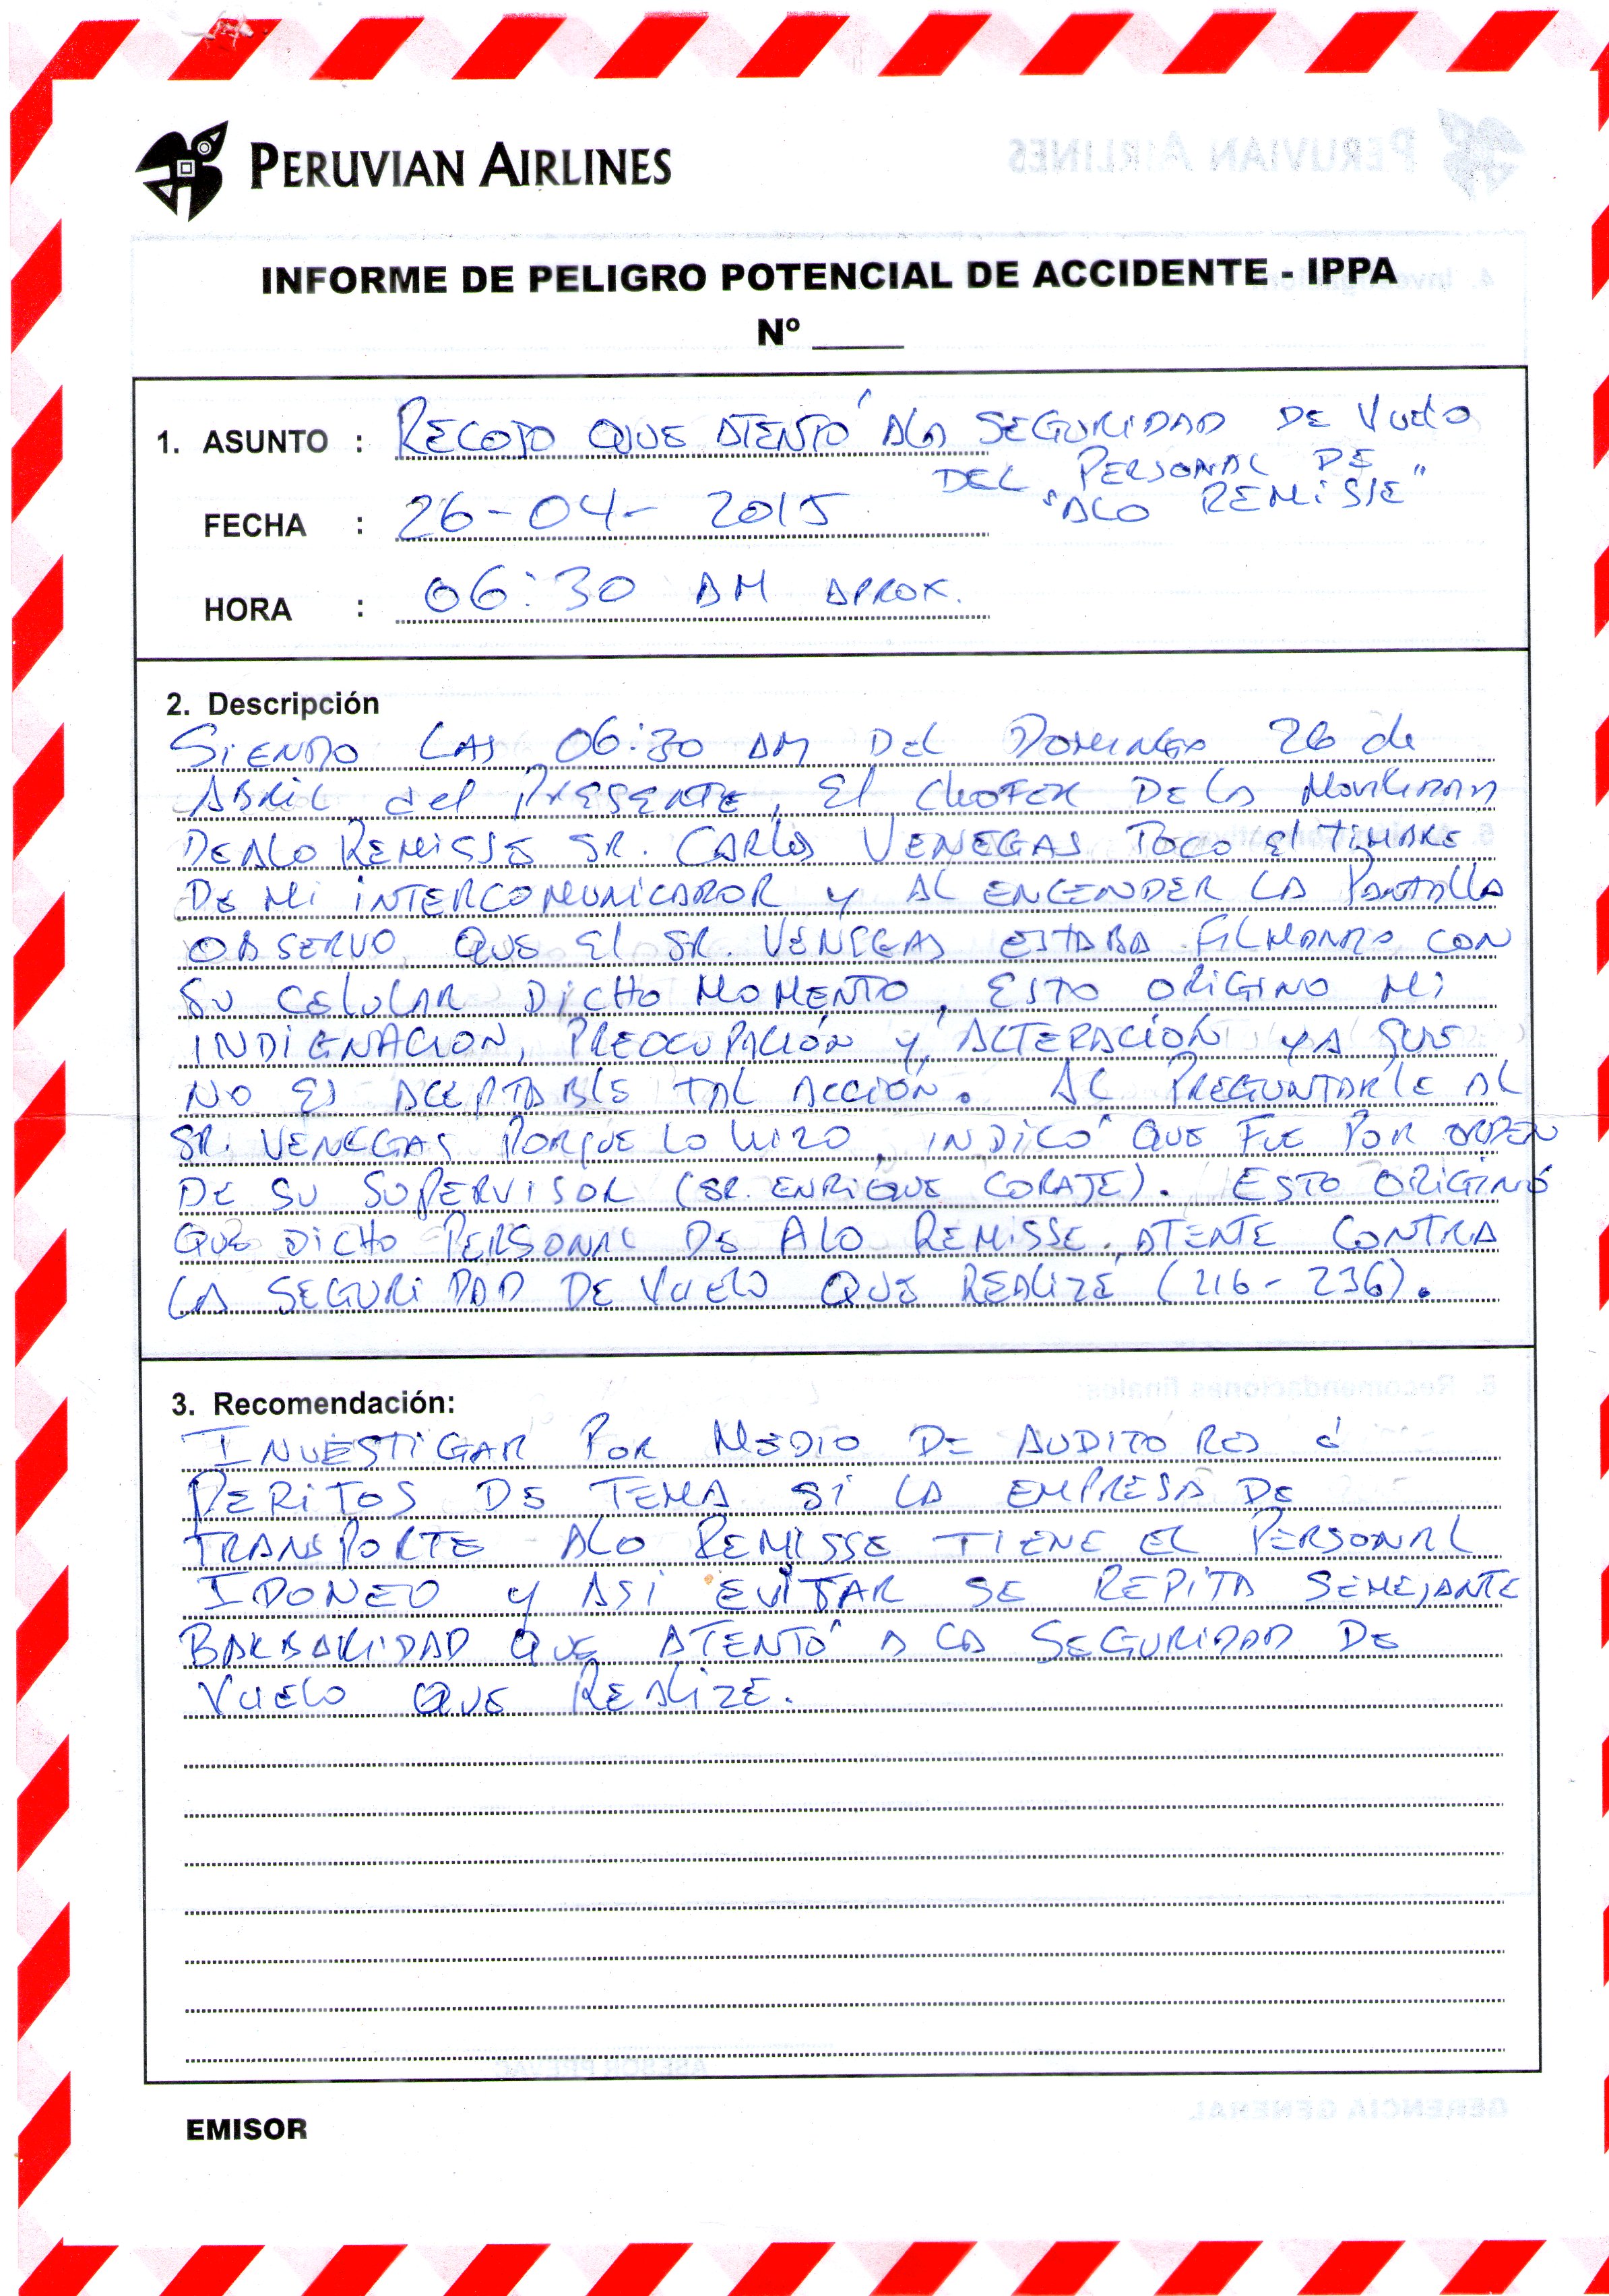 PERUVIAN AIRLINES
INFORME DE PELIGRO POTENCIAL DE ACCIDENTE - IPPA
Nº _____
1. ASUNTO : RECOJO QUE ATENTÓ A LA SEGURIDAD DE VUELO
DEL PERSONAL DE
"ALO REMISSE"
FECHA : 26-04-2015
HORA : 06:30 AM APROX.
2. Descripción
SIENDO LAS 06:30 AM DEL DOMINGO 26 de
ABRIL del PRESENTE, El CHOFER DE LA MOVILIDAD
DE ALO REMISSE SR. CARLOS VENEGAS TOCO el TIMBRE
DE MI INTERCOMUNICADOR Y AL ENCENDER LA PANTALLA
OBSERVO QUE El SR. VENEGAS ESTABA FILMANDO CON
SU CELULAR DICHO MOMENTO, ESTO ORIGINO MI
INDIGNACION, PREOCUPACIÓN Y ALTERACIÓN YA QUE
NO ES ACEPTABLE TAL ACCIÓN. AL PREGUNTARLE AL
SR. VENEGAS PORQUE LO HIZO, INDICÓ QUE FUE POR ORDEN
DE SU SUPERVISOR (SR. ENRIQUE CORAJE). ESTO ORIGINÓ
QUE DICHO PERSONAL DE ALO REMISSE, ATENTE CONTRA
LA SEGURIDAD DE VUELO QUE REALIZÉ (216-236).
3. Recomendación:
INVESTIGAR POR MEDIO DE AUDITORES ó
PERITOS DE TEMA SI LA EMPRESA DE
TRANSPORTE ALO REMISSE TIENE EL PERSONAL
IDONEO Y ASI EVITAR SE REPITA SEMEJANTE
BARBARIDAD QUE ATENTÓ A LA SEGURIDAD DE
VUELO QUE REALIZE.
EMISOR